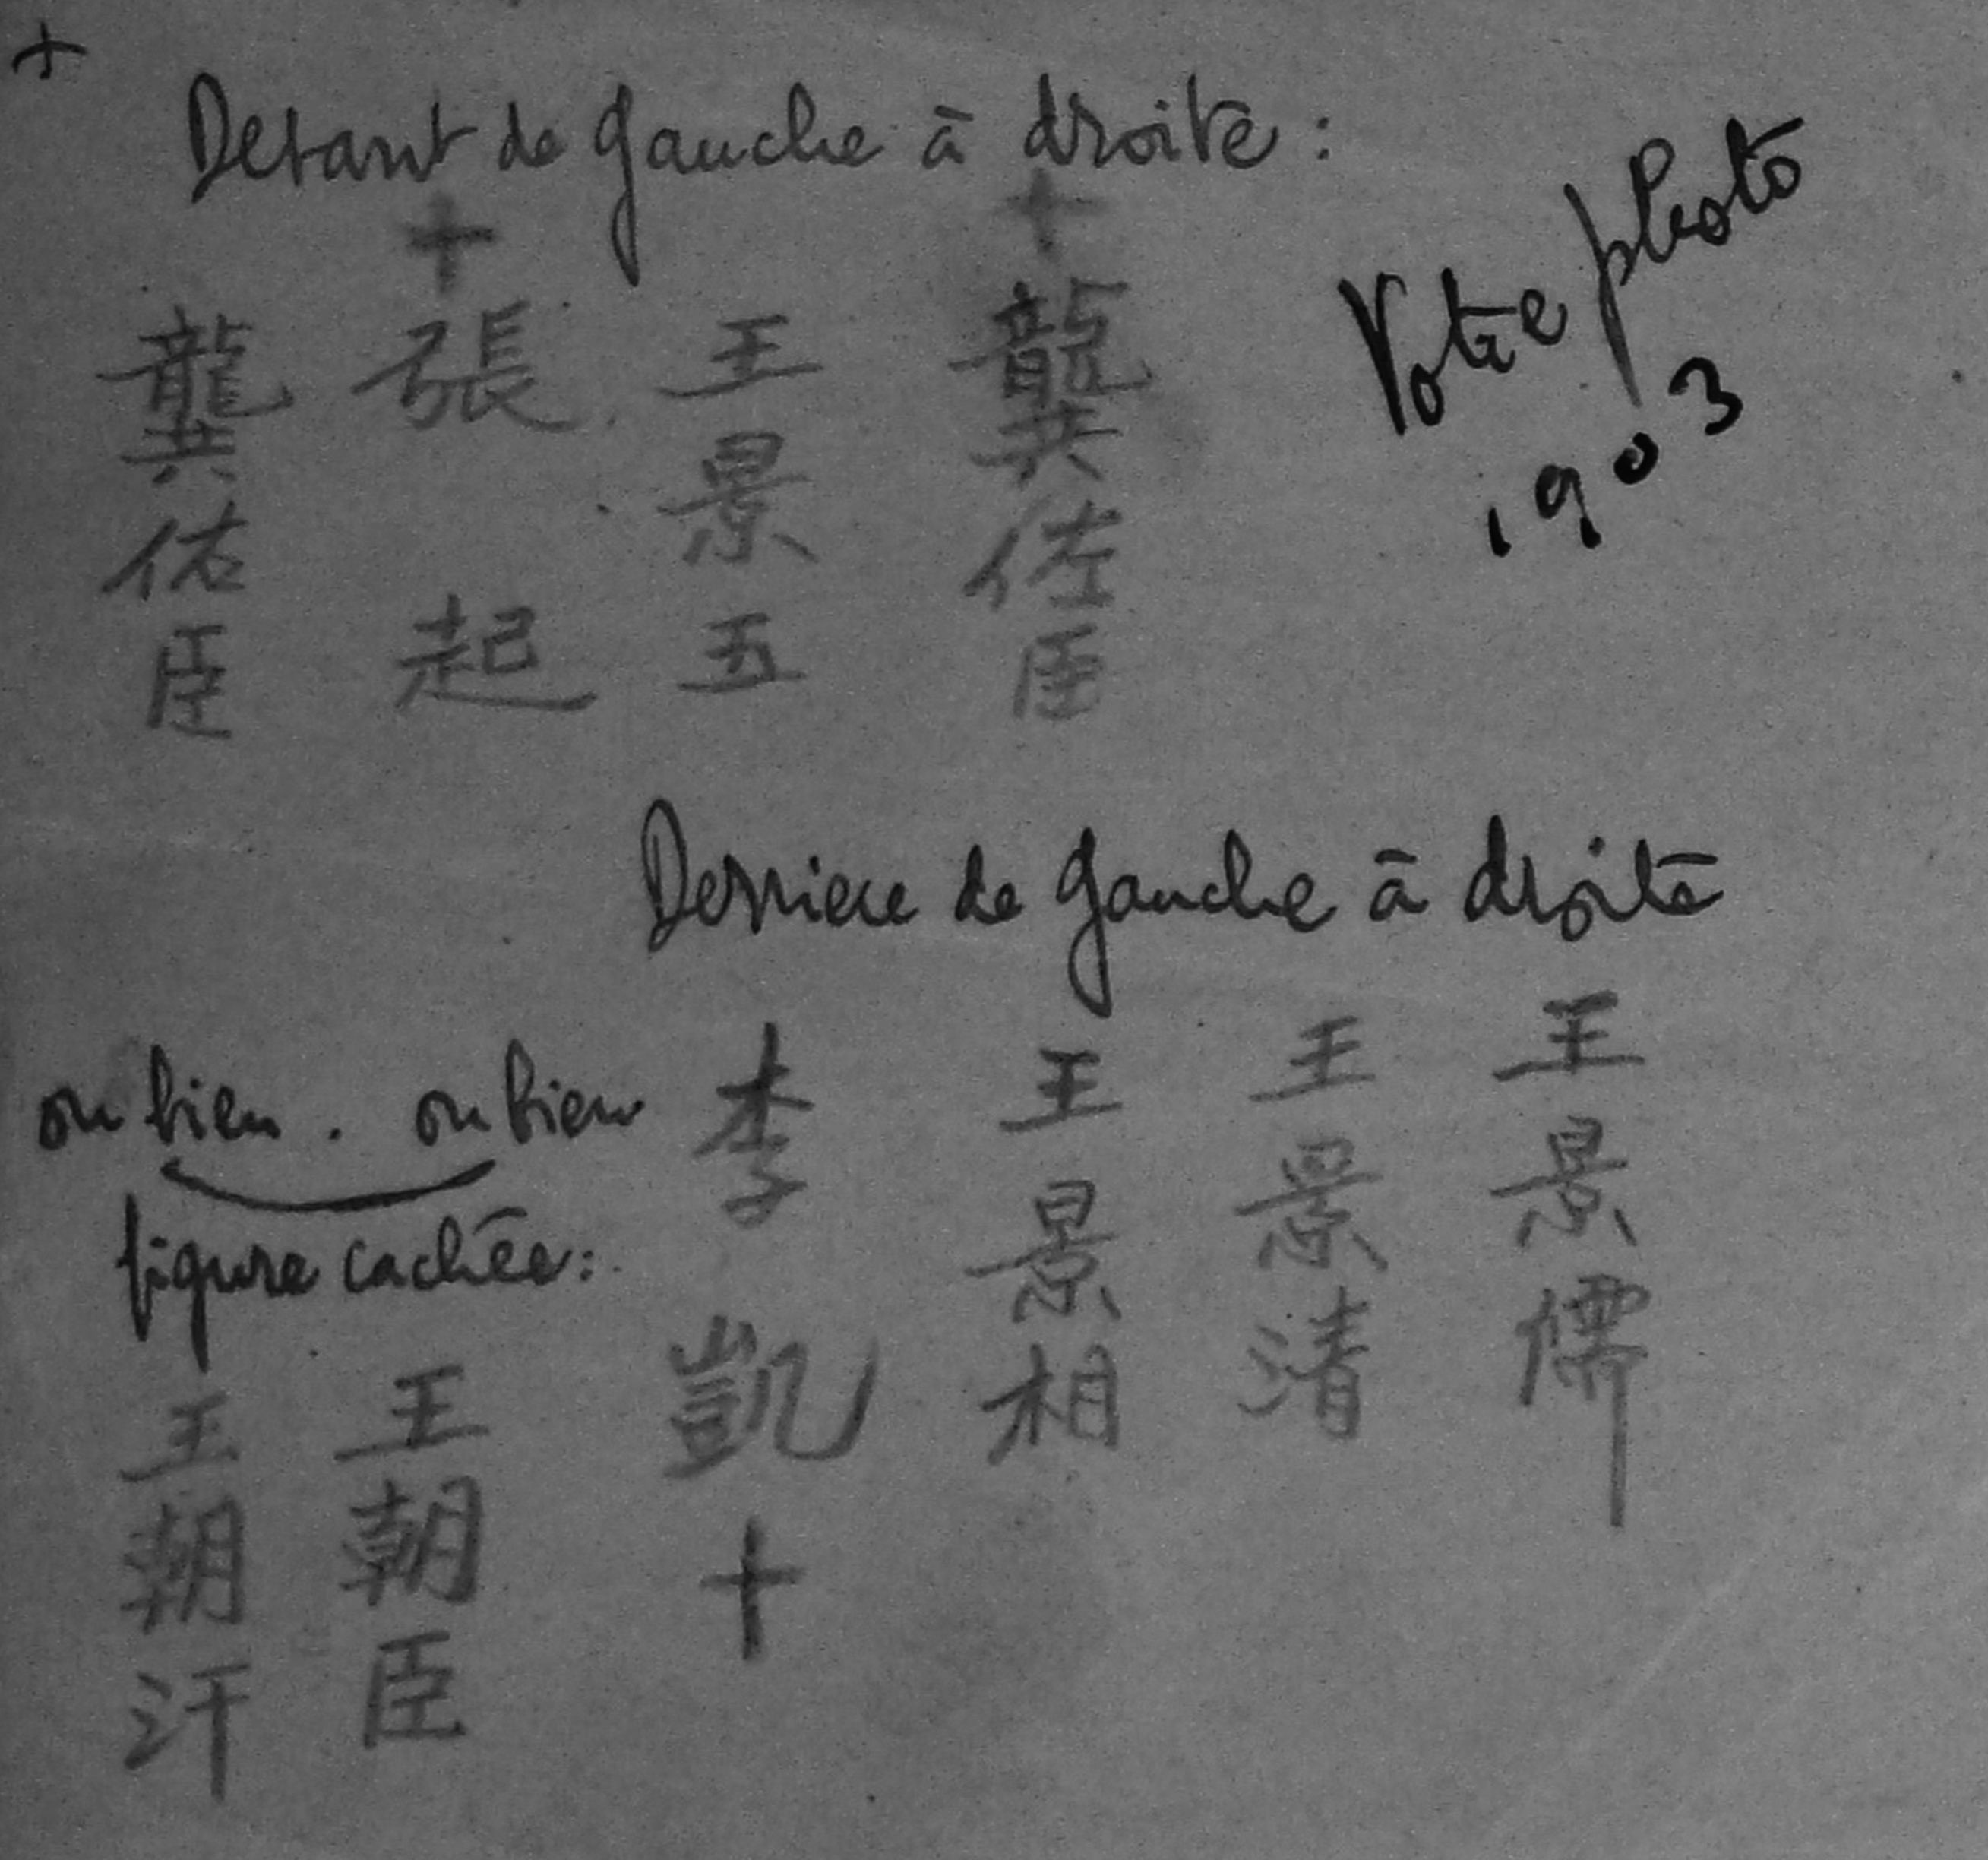 +
Devant de gauche à droite :
+ +
龔佑臣
張起
王景五
龔佐臣
Votre photo
1903
Derriere de gauche à droite
ou bien . ou bien
figure cachée :
王朝汗
王朝臣
李凱 +
王景相
王景清
王景儒